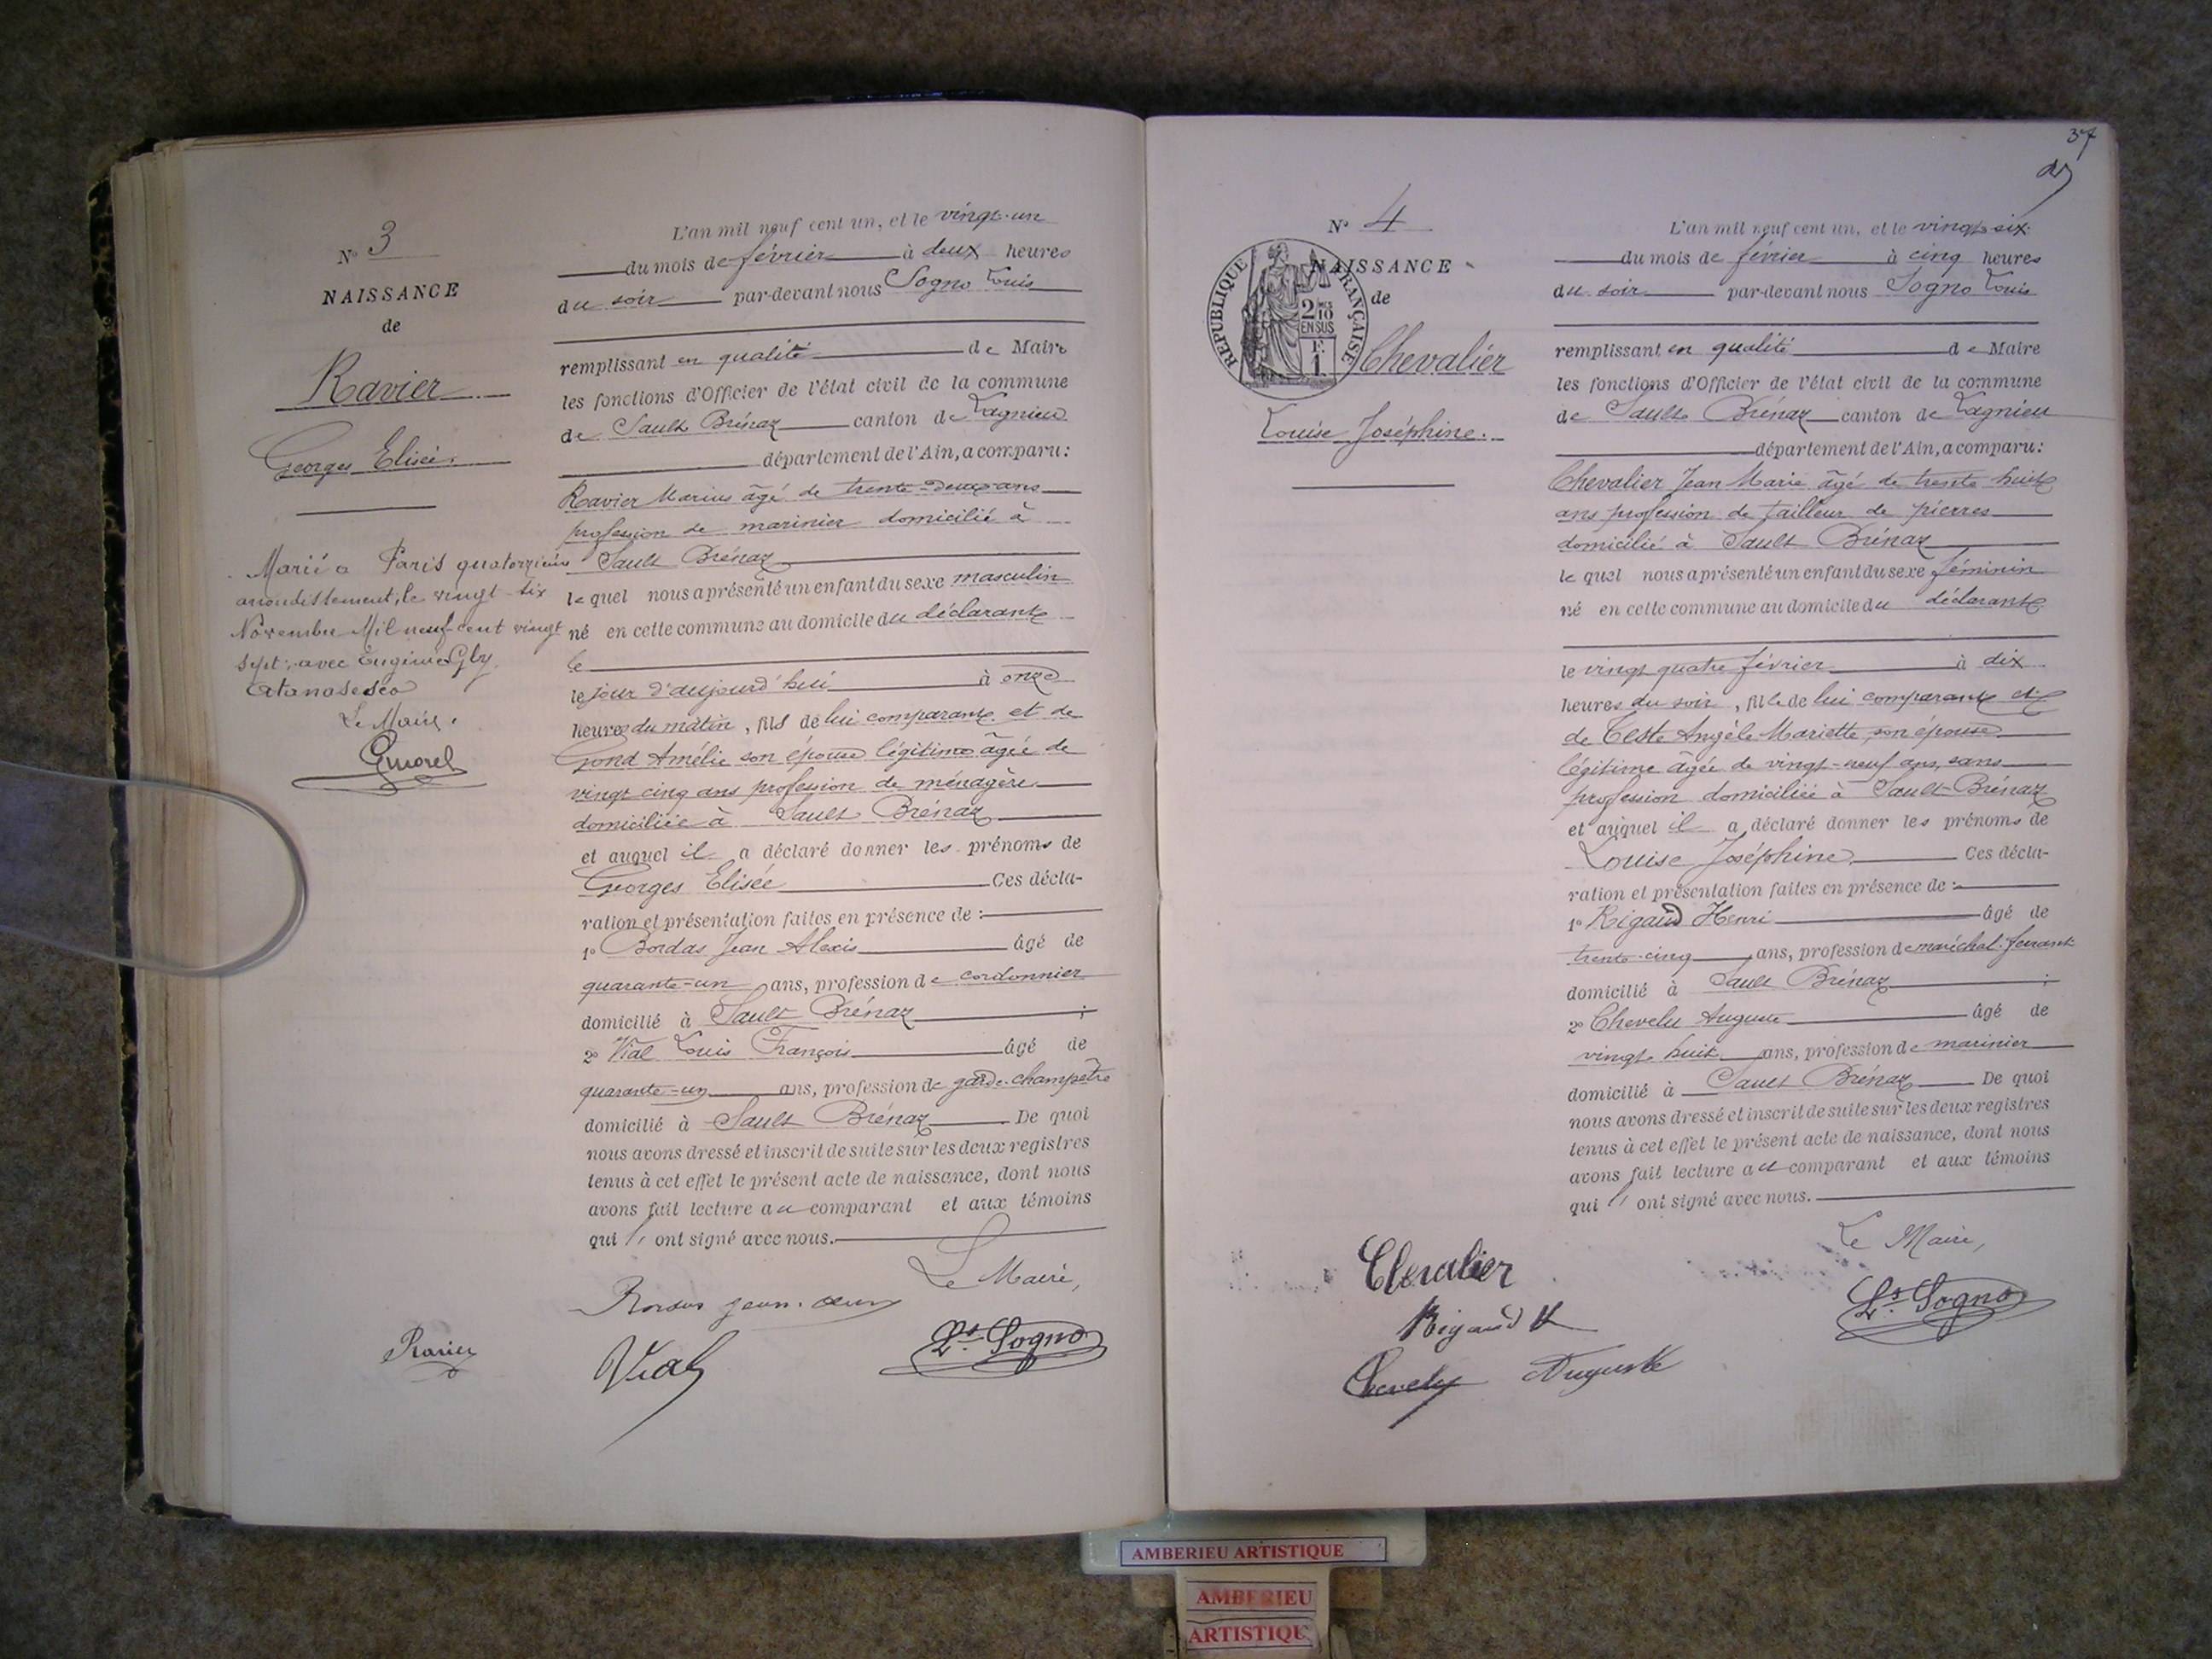 N° 3
NAISSANCE
de
Ravier
Georges Elisée.
Marié a Paris quatorzième
arrondissement, le vingt-six
Novembre Mil neuf-cent vingt
sept, avec Eugénie
Le Maire,
L'an mil neuf cent un, et le vingt-un
du mois de février à deux heures
du soir par-devant nous Sogno Louis
remplissant en qualité de Maire
les fonctions d'Officier de l'état civil de la commune
de Sault Brénaz canton de Lagnieu
département de l'Ain, a comparu:
Ravier Marius âgé de trente-deux ans
profession de marinier domicilié à
Sault Brénaz
le quel nous a présenté un enfant du sexe masculin
né en cette commune au domicile du déclarant
le
le jour d'aujourd'hui à onze
heures du matin, fils de lui comparant et de
Gond Amélie son épouse légitime âgée de
vingt cinq ans profession de ménagère
domiciliée à Sault Brénaz
et auquel il a déclaré donner les prénoms de
Georges Elisée Ces décla-
ration et présentation faites en présence de :
1° Bordas Jean Alexis âgé de
quarante-un ans, profession de cordonnier
domicilié à Sault Brénaz ;
2° Vial Louis François âgé de
quarante-un ans, profession de garde-champêtre
domicilié à Sault Brénaz De quoi
nous avons dressé et inscrit de suite sur les deux registres
tenus à cet effet le présent acte de naissance, dont nous
avons fait lecture au comparant et aux témoins
qui l' ont signé avec nous.
Le Maire,
Ravier
Vial
Ls Sogno
37
N° 4
RÉPUBLIQUE FRANÇAISE
2 10
EN SUS
F.
1.
NAISSANCE
de
Chevalier
Louise Joséphine.
L'an mil neuf cent un, et le vingt-six
du mois de février à cinq heures
du soir par-devant nous Sogno Louis
remplissant en qualité de Maire
les fonctions d'Officier de l'état civil de la commune
de Sault Brénaz canton de Lagnieu
département de l'Ain, a comparu:
Chevalier Jean Marie âgé de trente huit
ans profession de tailleur de pierres
domicilié à Sault Brénaz
le quel nous a présenté un enfant du sexe féminin
né en cette commune au domicile du déclarant
le vingt quatre février à dix
heures du soir, fille de lui comparant et
de Teste Angèle Mariette, son épouse
légitime âgée de vingt-neuf ans, sans
profession domiciliée à Sault-Brénaz
et auquel il a déclaré donner les prénoms de
Louise Joséphine Ces décla-
ration et présentation faites en présence de :
1° Rigaud Henri âgé de
trente-cinq ans, profession de maréchal-ferrant
domicilié à Sault Brénaz ;
2° Chevelu Auguste âgé de
vingt huit ans, profession de marinier
domicilié à Sault Brénaz De quoi
nous avons dressé et inscrit de suite sur les deux registres
tenus à cet effet le présent acte de naissance, dont nous
avons fait lecture au comparant et aux témoins
qui l' ont signé avec nous.
Le Maire,
Chevalier
Rigaud H
Ls Sogno
Chevelu Auguste
AMBERIEU ARTISTIQUE
AMBERIEU
ARTISTIQUE